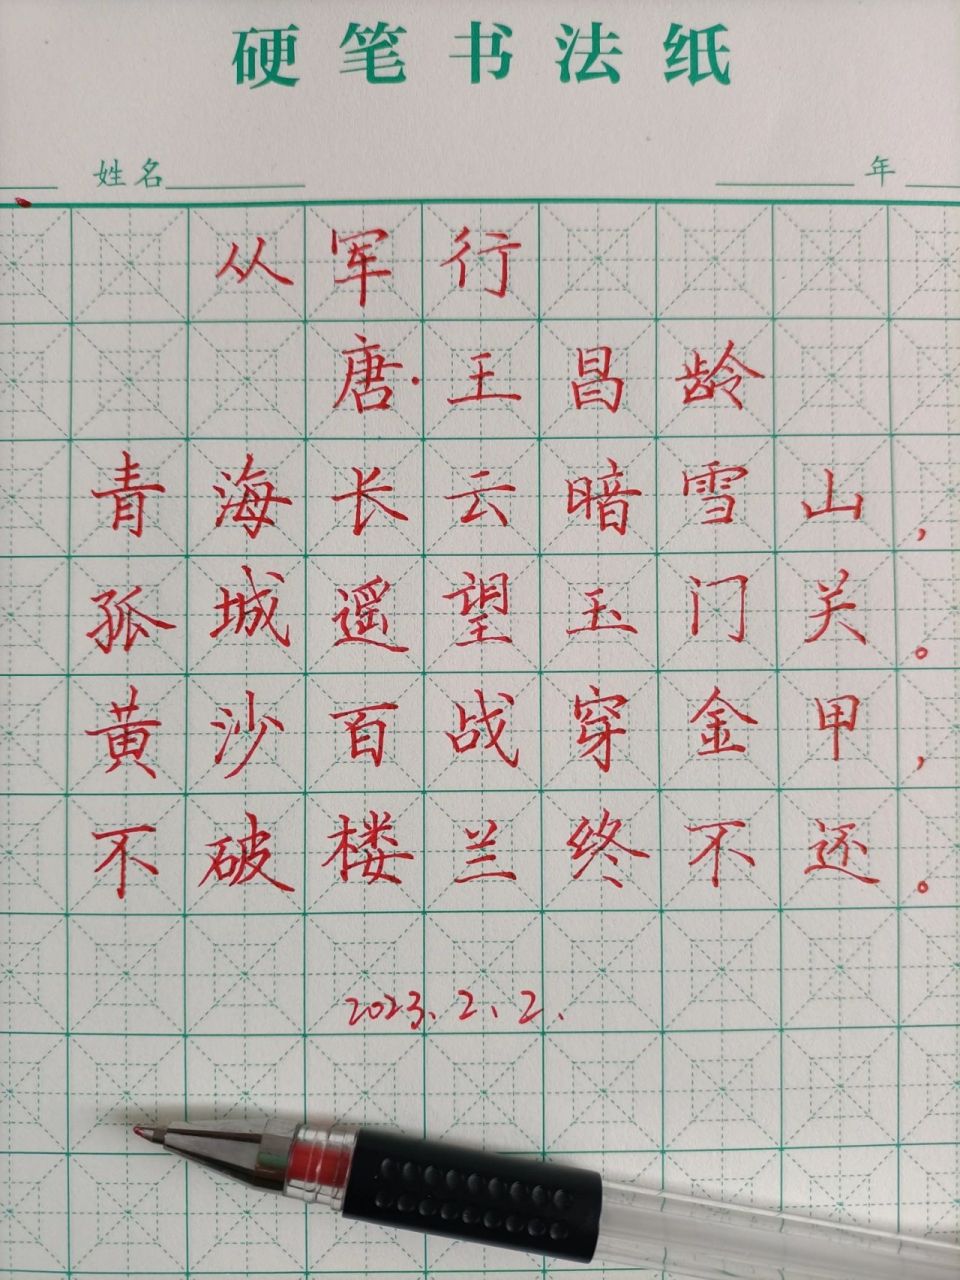 硬笔书法纸
姓名 年
从军行
唐·王昌龄
青海长云暗雪山，
孤城遥望玉门关。
黄沙百战穿金甲，
不破楼兰终不还。
2023.2.2.